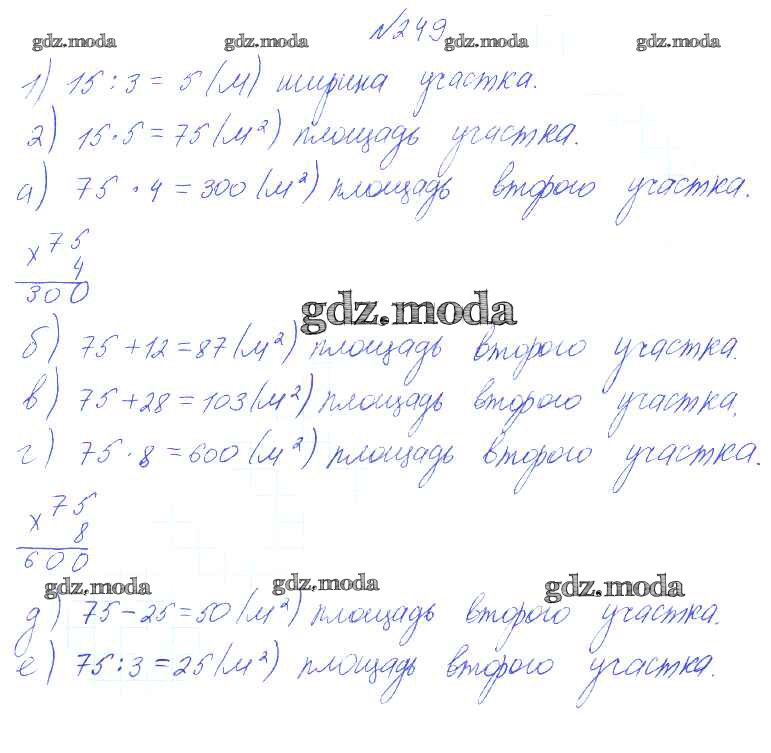 №249
gdz.moda gdz.moda gdz.moda gdz.moda
1) 15 : 3 = 5 (м) ширина участка.
2) 15 · 5 = 75 (м²) площадь участка.
а) 75 · 4 = 300 (м²) площадь второго участка.
× 75
4
300
gdz.moda
б) 75 + 12 = 87 (м²) площадь второго участка.
в) 75 + 28 = 103 (м²) площадь второго участка.
г) 75 · 8 = 600 (м²) площадь второго участка.
× 75
8
600
gdz.moda gdz.moda gdz.moda
д) 75 – 25 = 50 (м²) площадь второго участка.
е) 75 : 3 = 25 (м²) площадь второго участка.